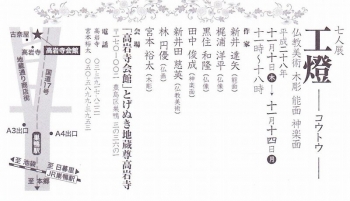 七人展
工燈
――コウトウ――
仏教美術 木彫 能面 神楽面
平成二十八年
十一月十日㊍→十一月十四日㊊
十一時〜十八時
作家
新井 達矢(能面)
梶浦 洋平(仏像)
黒住 和隆(仏像)
田中 俊成(神楽面)
新井田 慈英(仏教美術)
林 円優(仏画)
宮本 裕太(木彫)
会場
「高岩寺会館」とげぬき地蔵尊高岩寺
〒一七〇-〇〇〇二 豊島区巣鴨三の三六の一
電話
高岩寺
宮本裕太
古奈屋
高岩寺
高岩寺会館
国道17号
地蔵通り商店街
A3出口
A4出口
巣鴨駅
至 池袋
至 日暮里
JR巣鴨駅
至 本郷